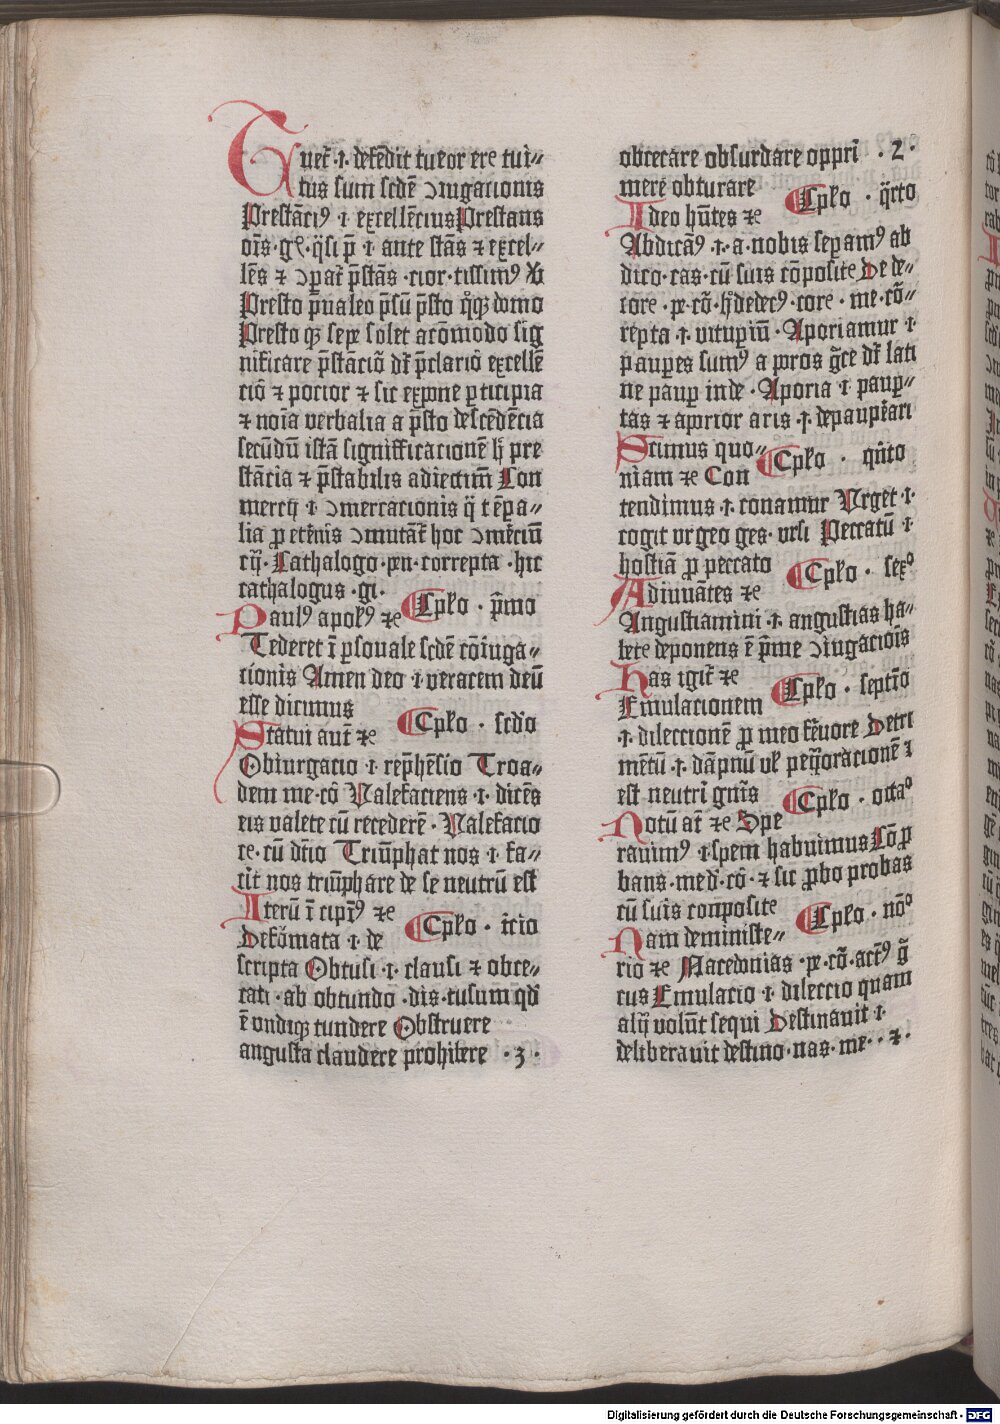 Tuet̄ ·ı· defēdit tueor ere tui⸗
tus sum scd̄e ↄiugacionis
Prestāciꝰ ı excellēcius Prestans
om̄s
ı ante stās ⁊ excel⸗
lēs ⁊ ↄꝑat̄ p̄stās ·cior·tissimꝰ
Presto p̄ualeo p̄sū p̄sto
domo
Presto qꝫ sepe solet acōmodo sig
nificare p̄stāciō dr̄ p̄clariō excellē
ciō ⁊ pocior ⁊ sic expone ꝑticipia
⁊ noīa verbalia a p̄sto descēdēcia
secūdū istā signifficacionē
pre
stācia ⁊ p̄stabilis adiectiuū Con
mercij ı ↄmercacionis q̄ tēpa⸗
lia ꝑ et̄nis ↄmutāt̄ hoc ↄm̄ciū
cij· Cathalogo·pn·correpta·hic
cathalogus·gi· Cplo · p̄mo
Paulꝰ apolꝰ ⁊c
Tederet ī ꝑsonale scd̄e cōiuga⸗
cionis Amen deo ı veracem deū
esse dicimus Cplo · scd̄o
Statui aut̄ ⁊c
Obiurgacio ı rep̄hēsio Troa⸗
dem me·cō Valefaciens ·ı· dicēs
eis valete cū recederē· Valefacio
is·cū dc̄io Triūphat nos ·ı· fa⸗
cit nos triūphare de se neutrū est
Iterū ī cipiꝰ ⁊c Cplo · t̄cio
Defōmata ·ı· de
scripta Obtusi ·ı· clausi ⁊ obce⸗
cati·ab obtundo·dis·tusum qd̄
ē vndiqꝫ tundere Obstruere
angusta claudere prohibere ·3·
obcecare obsurdare oppri ·2·
mere obturare Cplo · q̄rto
Ideo hn̄tes ⁊c
Abdicāꝰ ·ı· a·nobis sepamꝰ ab
dico·cas·cū suis cōposite De de⸗
core
me·cō⸗
repta ·ı· vitupiū·Aporiamur ı
paupes sumꝰ a poros gc̄e dr̄ lati
ne paup inde·Aporia ı paup⸗
tas ⁊ aporior aris ·ı· depaupērari
Scimus quo⸗ Cplo · qn̄to
niam ⁊c Con
tendimus ·ı· conamur Vrget ·ı·
cogit vrgeo ges·vrsi Peccatū ı
hostiā ꝑ peccato Cplo · sexᵒ
Adiuuātes ⁊c
Angustiamini ·ı· angustias ha⸗
bete deponens ē p̄me ↄiugacioīs
Has igit̄ ⁊c Cplo · septīo
Emulacionem
·ı· dileccionē ꝑ meo fēuore Detri
mētū ·ı· dāpnū vl̄ peiꝯoracionē ı
est neutri gn̄is Cplo · octaᵒ
Notū at̄ ⁊c Spe
rauimꝰ ·ı· spem habuimus Cō ꝑ
bans·med·cō·⁊ sic ꝓbo probas
cū suis composite Cplo · nōᵒ
Nam deministe⸗
rio ⁊c Macedonias
cus Emulacio ·ı· dileccio quam
alij volūt sequi Destinauit ı
deliberauit destino·nas·me··⁊·
Digitalisierung gefördert durch die Deutsche Forschungsgemeinschaft - DFG